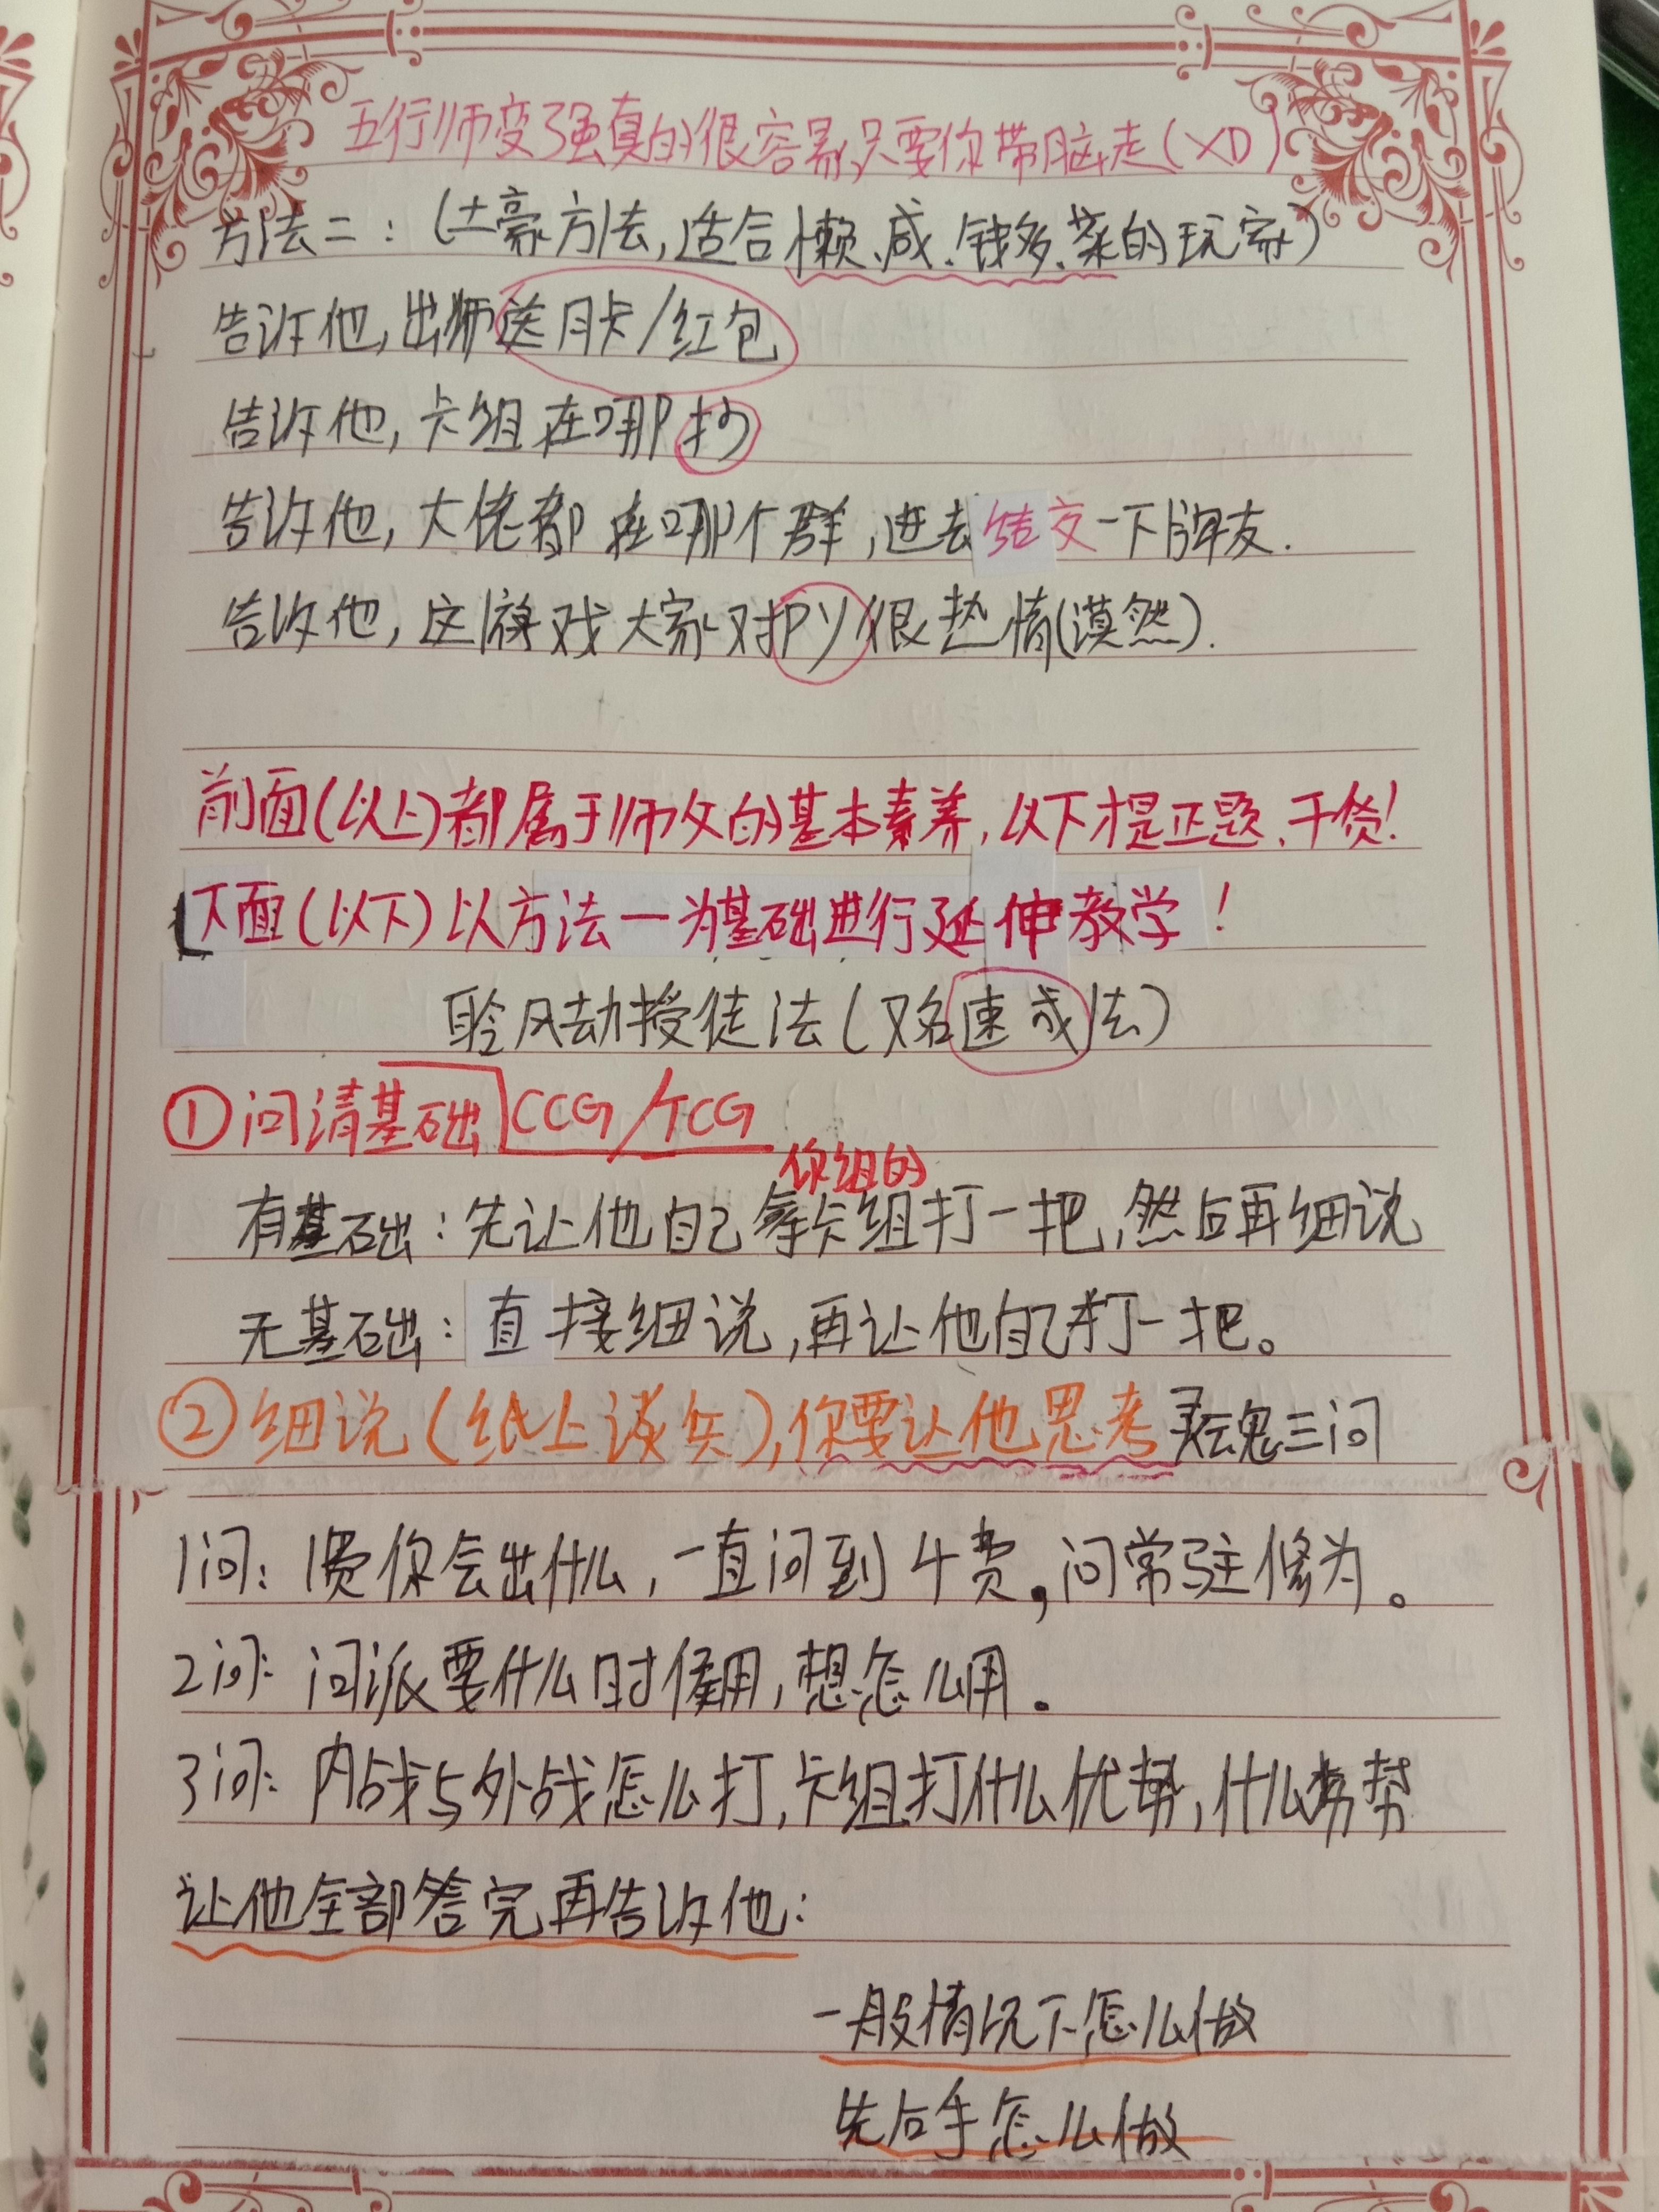 五行师变强真的很容易,只要你带脑走(XD)
方法二：(土豪方法,适合懒、咸、钱多、菜的玩家)
告诉他,出师送月卡/红包
告诉他,卡组在哪抄
告诉他,大佬都在哪个群,进去结交一下牌友.
告诉他,这游戏大家对PY很热情(漠然).
前面(以上)都属于师父的基本素养,以下才是正题、干货!
下面(以下)以方法一为基础进行延伸教学!
聆风劫授徒法(又名速成法)
①问清基础 CCG/TCG
你组的
有基础：先让他自己拿卡组打一把,然后再细说
无基础：直接细说,再让他自己打一把。
②细说(纸上谈兵),你要让他思考 灵魂三问
1问：1费你会出什么,一直问到4费,问常驻修为。
2问：问派要什么时候用,想怎么用。
3问：内战与外战怎么打,卡组打什么优势,什么劣势
让他全部答完再告诉他：
一般情况下怎么做
先后手怎么做